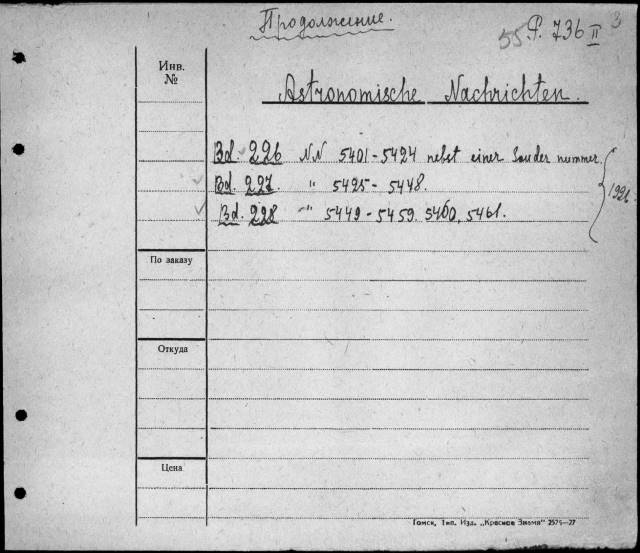 Продолжение.
55 P. 736 II 3
Инв. №
Astronomische Nachrichten.
Bd. 226 NN 5401-5424 nebst einer Sonder nummer.
Bd. 227. " 5425-5448.
Bd. 228 " 5449-5459. 5460, 5461.
1926.
По заказу
Откуда
Цена
Томск, Тип. Изд. „Красное Знамя" 2575—27